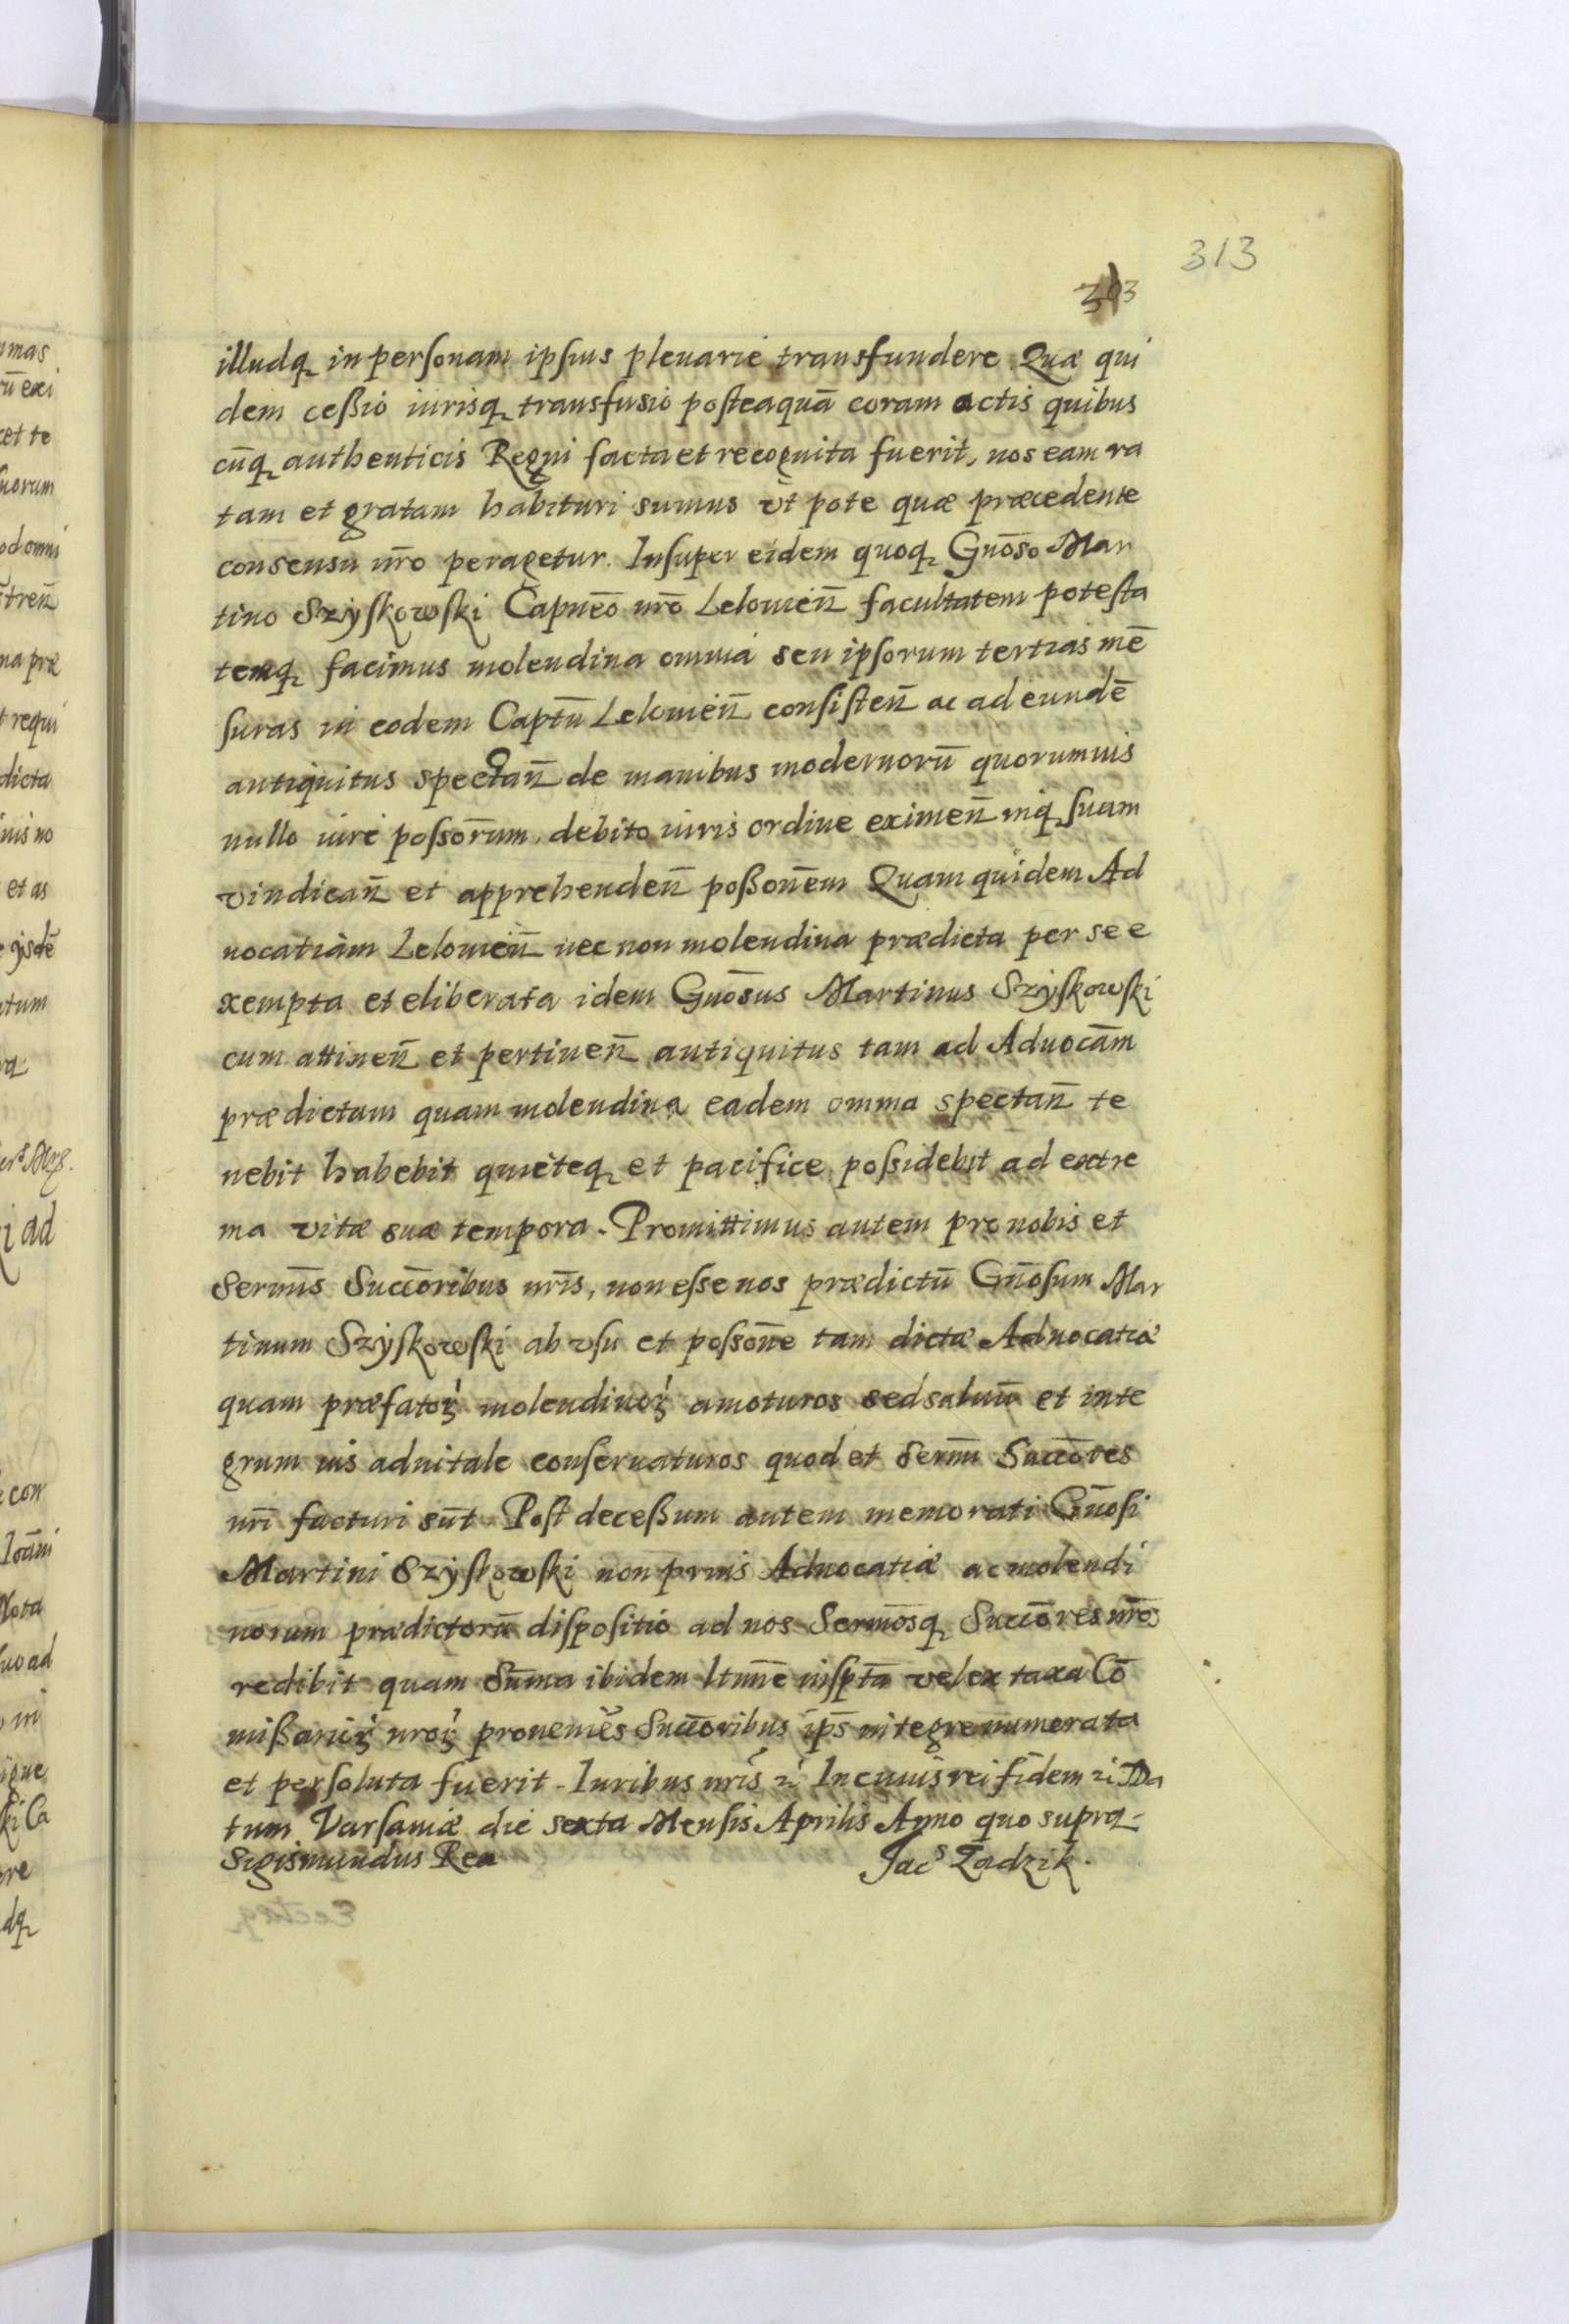 313
313
illudq in personam ipsius plenarie transfundere. Quæ qui
dem ceßio iurisq transfusio posteaquā coram actis quibus
cūq authenticis Regni facta et recognita fuerit, nos eam ra
tam et gratam habituri sumus vt pote quæ præcedente
consensu nr̄o peragetur. Insuper eidem quoq Gnōso Mar
tino Szyskowski Capnēo nr̄o Lelouien̄ facultatem potesta
temq facimus molendina omnia seu ipsorum tertias mē
suras in eodem Captū Lelouien̄ consisten̄ ac ad eundē
antiquitus spectan̄ de manibus modernorū quorumuis
nullo iure possor̄um, debito iuris ordine eximen̄ inq suam
vindican̄ et apprehenden̄ poßonēm Quam quidem Ad
uocatiam Lelouien̄ nec non molendina prædicta per se e
xempta et eliberata idem Gnōsus Martinus Szyskowski
cum attinen̄ et pertinen̄ antiquitus tam ad Aduocām
prædictam quam molendina eadem omnia spectan̄ te
nebit habebit quieteq et pacifice possidebit ad extre
ma vitæ suæ tempora. Promittimus autem pro nobis et
Sermīs Succōribus nrīs, non esse nos prædictū Gnōsum Mar
tinum Szyskowski ab vsu et possōne tam dictæ Aduocatiæ
quam præfatoꝝ molendinoꝝ amoturos sed saluū et inte
grum ius aduitale conseruaturos quod et Sermī Succōres
nrī facturi sūt. Post deceßum autem memorati Gnōsi
Martini Szyskowski non prius Aduocatiæ ac molendi
norum prædictorū dispositio ad nos Sermōsq Succōres nrōs
redibit quam Sūma ibidem ltmē inspta vel ex taxa Cō
mißarioꝝ nroꝝ proueniēs Succōribus ips̄ integre numerata
et persoluta fuerit. Iuribus nrīs ꝛc̄ In cuius rei fidem ꝛc̄ Da
tum Varsauiæ die sexta Mensis Aprilis Anno quo supra.
Sigismundus Rex Jacs Zadzik.